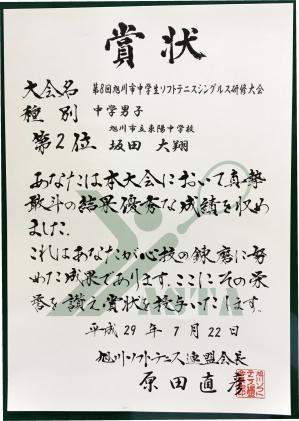 賞状
大会名 第8回旭川市中学生ソフトテニスシングルス研修大会
種別 中学男子
旭川市立東陽中学校
第2位 坂田 大翔
あなたは本大会において真摯
敢斗の結果優秀な成績を収め
ました.
これはあなたが心技の錬磨に努
めた成果であります.ここにその栄
誉を讃え賞状を授与いたします.
平成29年7月22日
旭川ソフトテニス連盟会長
原田直彦